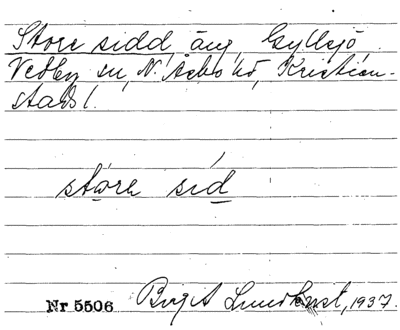 Store sidd, äng, Gyllsjö
Vedby sn, N. Åsbo hd, Kristian-
stads l.
störe sid
Nr 5506 Birgit Lundkvist, 1937.